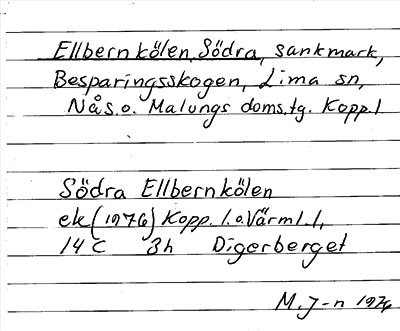 Ellbernkölen, Södra, sankmark,
Besparingsskogen, Lima sn,
Nås o. Malungs doms.tg. Kopp. l
Södra Ellbernkölen
ek (1976) Kopp. l. o. Värml. l,
14 C 3h Digerberget
M. J-n 1976